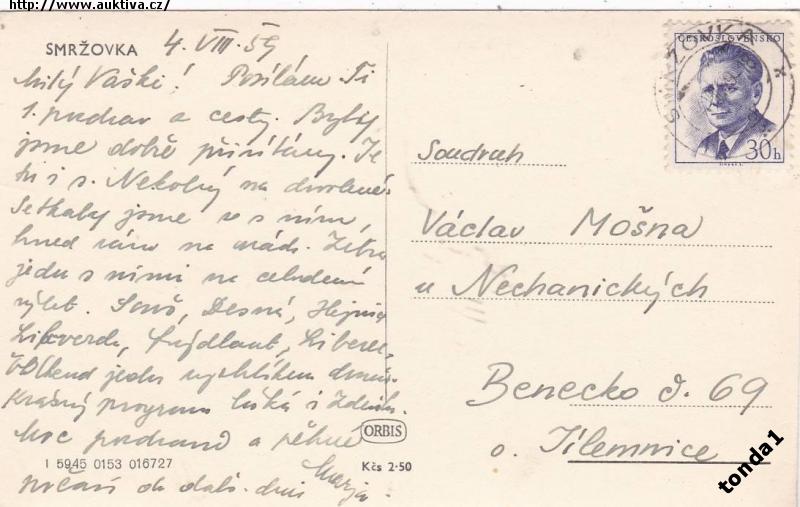 http://www.auktiva.cz/
SMRŽOVKA 4. VIII. 59
Milý Vaški! Posílám Ti
1. pozdrav z cesty. Byly
jsme dobře přivítány. Je
tu i s. Nekolný na dovolené.
Setkaly jsme se s ním,
hned ráno na nádr. Zítra
jedu s nimi na celodenní
výlet. Souš, Desná, Hejnice
Libverda, Frýdlant, Liberec.
jedu rychlíkem domů.
Krásný program láká i Zdenku.
Moc pozdravů a pěkné
počasí do dalš. dnů
ORBIS
I 5945 0153 016727
Kčs 2·50
ČESKOSLOVENSKO
30h
SMRŽOVKA
Soudruh
Václav Mošna
u Nechanických
Benecko č. 69
o. Jilemnice
tonda1